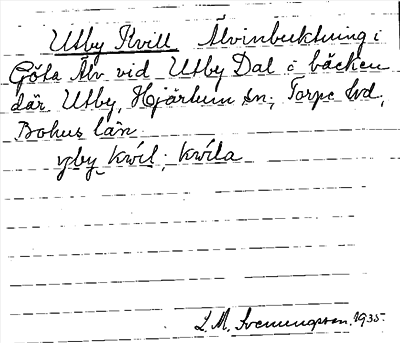 Utby Kvill Älvinbuktning i
Göta Älv vid Utby Dal o bäcken
där Utby, Hjärtum sn, Torpe hd,
Bohus län
yby kwil; kwila
L. M. Svenungsson. 1935.